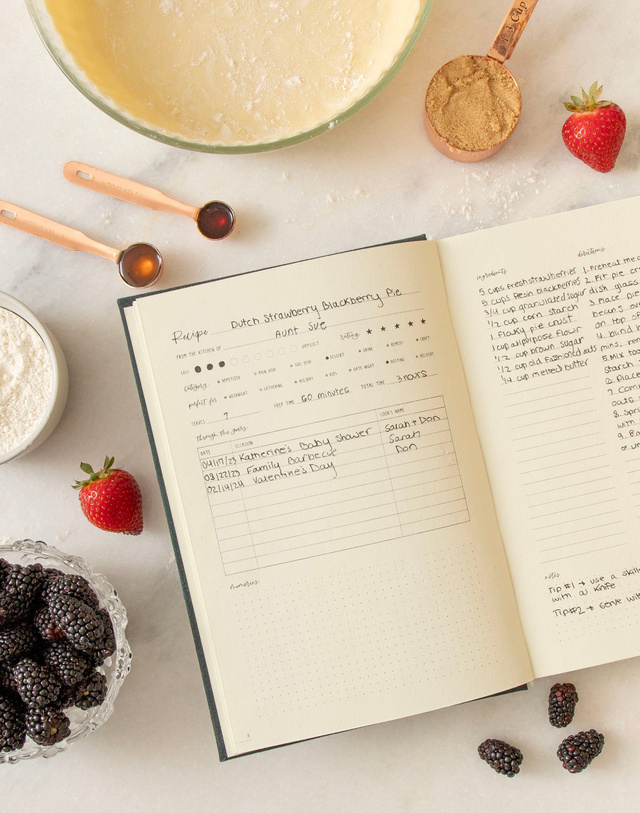 1/3 Cup
Recipe Dutch Strawberry Blackberry Pie
FROM THE KITCHEN OF Aunt Sue
EASY DIFFICULT Rating ★ ★ ★ ★ ★
category APPETIZER MAIN DISH SIDE DISH DESSERT DRINK CRAFT
perfect for WEEKNIGHT GATHERING HOLIDAY KIDS DATE NIGHT HOSTING
SERVES 7 PREP TIME 60 minutes TOTAL TIME 3 hours
through the years
DATE OCCASION COOK'S NAME
04/17/23 Katherine's Baby Shower Sarah + Don
Family Barbecue Sarah
02/14/24 Valentine's Day Don
memories
ingredients
5 cups fresh strawberries
5 cups fresh blackberries
3/4 cup granulated sugar
1/2 cup corn starch
1 flaky pie crust
1 cup allpurpose flour
1/2 cup brown sugar
1/2 cup old fashioned oats
1/4 cup melted butter
directions
1. Preheat the o
2. Fit pie cr
dish glass
3. Place pie
beans ov
on top of
4. blind
mins, rem
5. Mix
starch
6. Place
7. Com
oats
8. Sp
with
9. Ba
or un
notes
Tip #1 → use a skille
with a knife
Tip #2 → serve wit